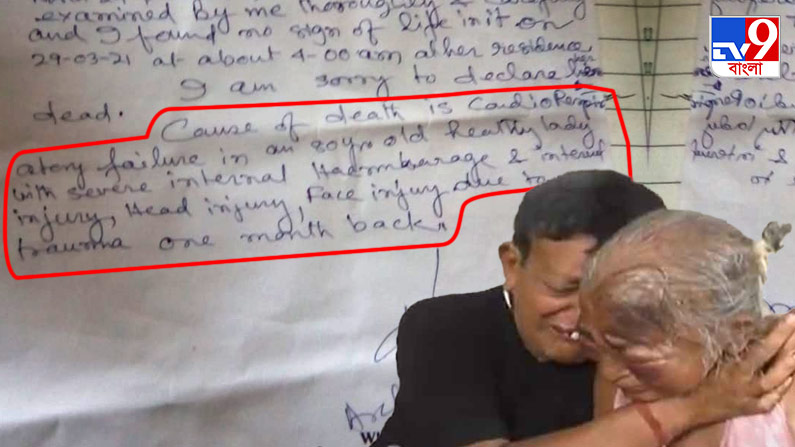 examined by me thoroughly &
and I found no sign of life in it on
29-03-21 at about 4-00 am at her residence
I am sorry to declare her
dead.
Cause of death is Cardio Respir
atory failure in an 80 yr old healthy lady
with severe internal Haemburage & internal
injury, Head injury, Face injury due to
trauma one month back"
TV9
বাংলা